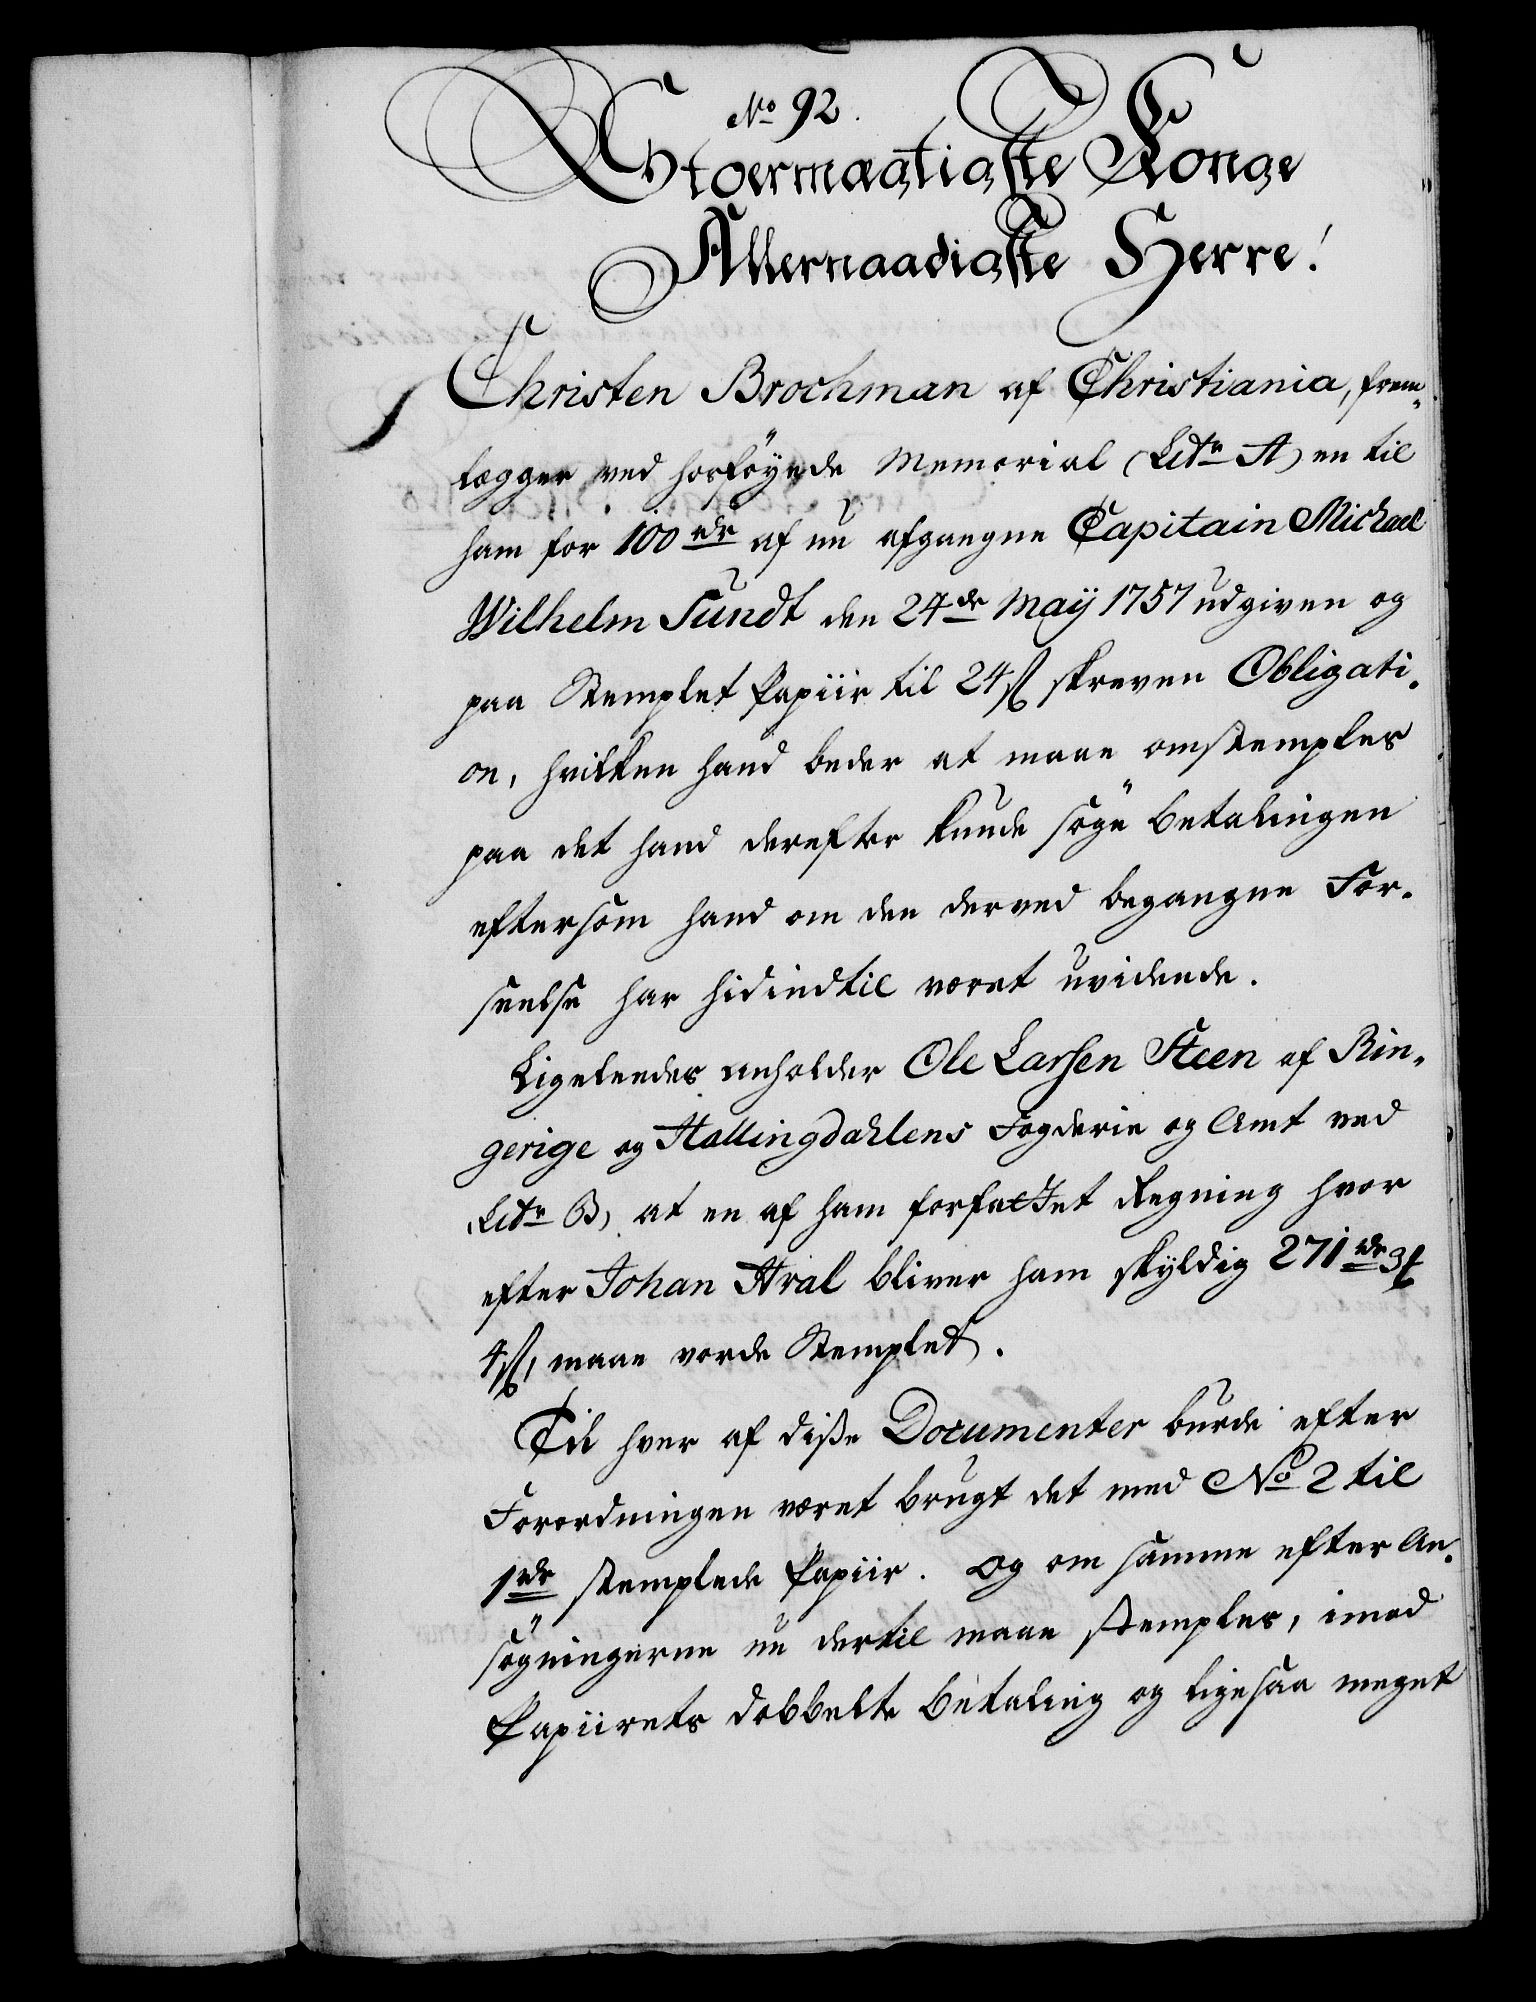 No 92.
Stoermægtigste Konge
Allernaadigste Herre!
Christen Brochman af Christiania, frem-
lægger ved hosföyede Memorial (Litr A) en til
ham for 100 rdr af nu afgangne Capitain Michael
Wilhelm Sundt den 24de Maÿ 1757 udgiven og
paa Stemplet Papiir til 24 ß skreven Obligati-
on, hvilken hand beder at maae omstemples
paa det hand derefter kunde söge Betalingen
eftersom hand om den derved begangne For-
seelse har hidindtil været uvidende.
Ligeleedes anholder Ole Larsen Steen af Rin-
gerige og Hallingdahlens Fogderie og Amt ved
(Litr B) at en af ham forfattet Regning hvor
efter Johan Hval bliver ham skÿldig 271 rdr 3 ℔
4 ß, maae vorde Stemplet.
Til hver af diße Documenter burde efter
Forordningen været brugt det med No 2 til
1 rdr stemplede Papiir. Og om samme efter An-
sögningerne nu dertil maae stemples, imod
Papiirets dobbelte Betaling og ligesaa meget